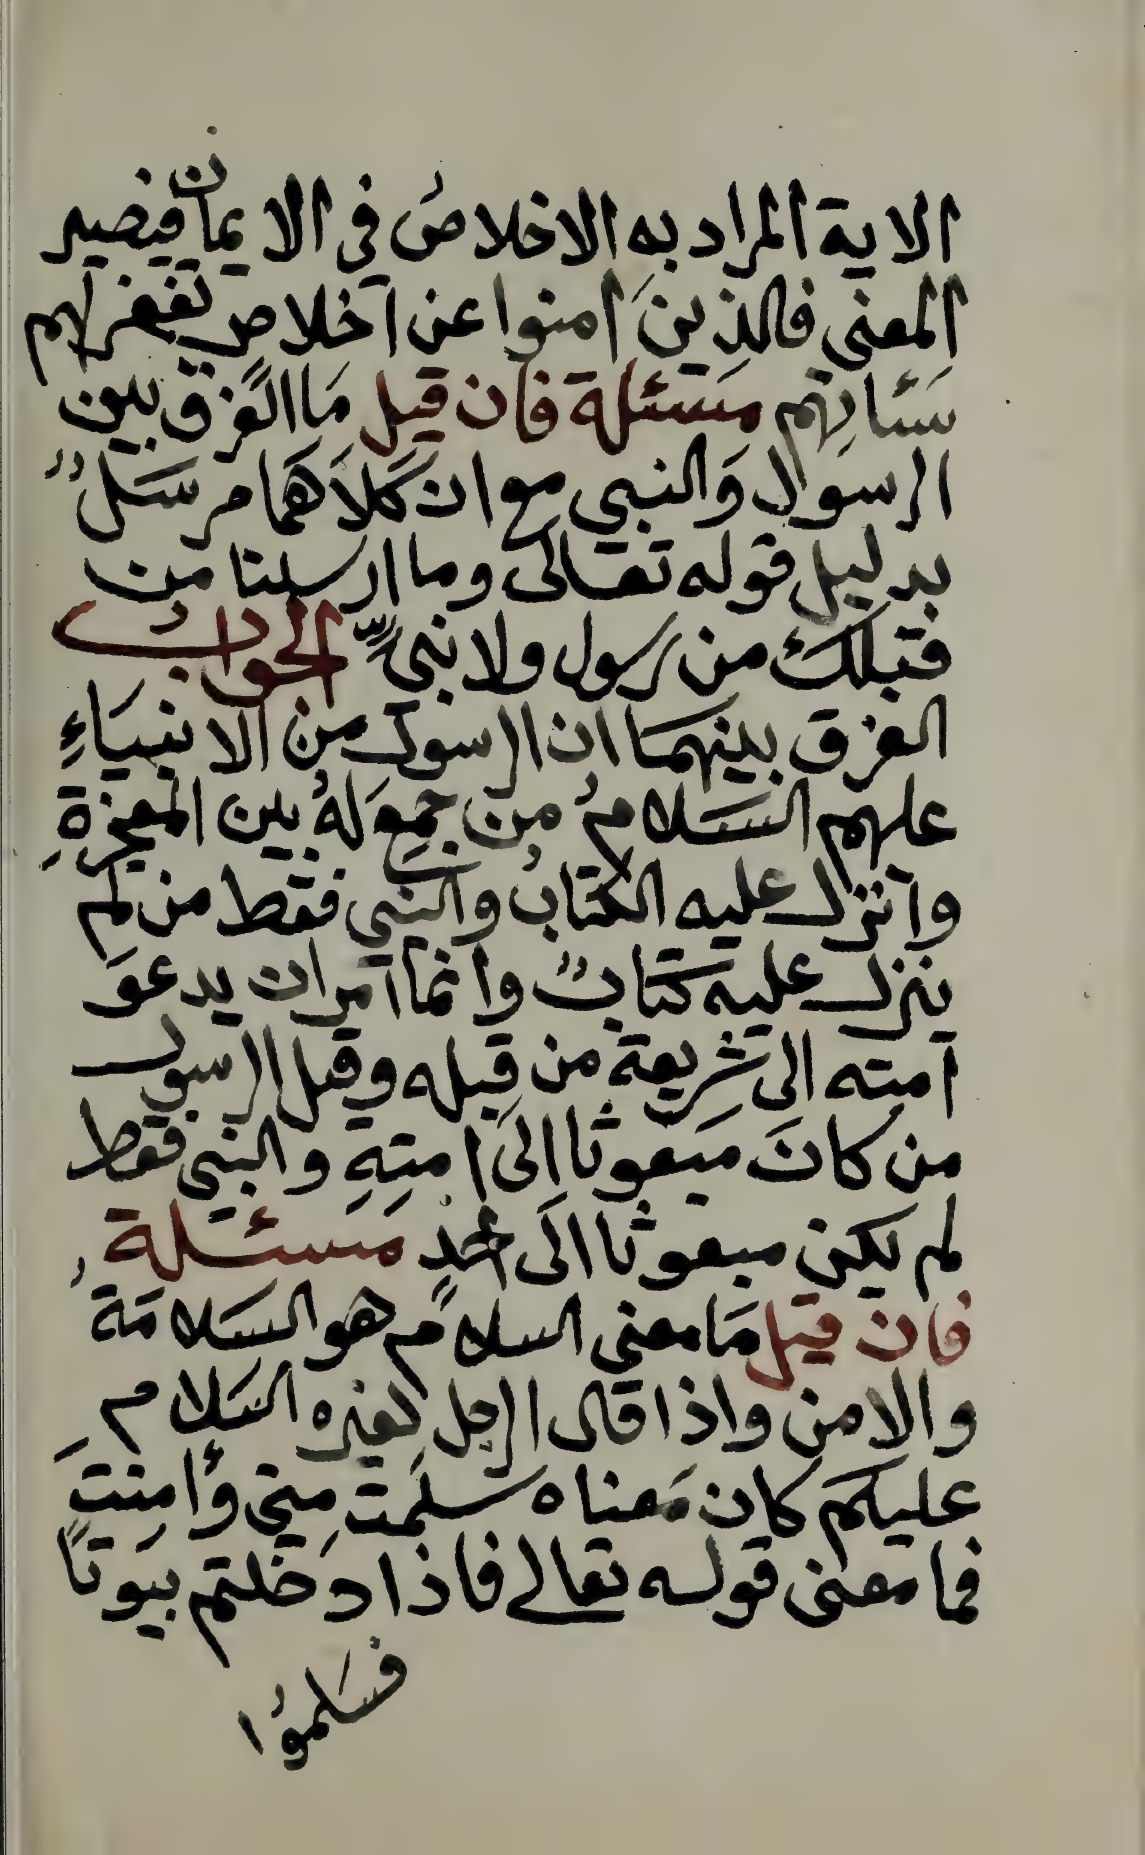 الاية المراد به الاخلاصُ في الايمان فيصير
المعنى فالذينَ امنوا عن اخلاصٍ تغفر لهم
سَئاتِهم مَسئلة فان قيل مَا الفرق بين
الرسول وَالنبي مع ان كَلاَهمَا مرسَلٌ
بدليل قوله تعالى وما ارسلنا من
قبلك من رسول ولا نبيٍّ الجوابُ
الفرق بينهمَا ان الرسول من الانبيَاءِ
عليهم السَلامُ من جمِعَ لهُ بين المعجزةِ
وانزل عليه الكتابُ والنبي فقط من لم
ينزل عليه كتابٌ وانما امر ان يدعوَ
امته الى شريعة من قبله وقيل الرسول
من كانَ مَبعوثا الىَ امتِهِ والنبي فقط
لم يكن مبعوثا الَى احدٍ مسئلة
فان قيل مَا معنى السلامُ هو السَلامَةُ
والامن واذا قال الرجل لغيره السَلام
عليكم كان مَعناه سَلِمَت مِني وأمِنتَ
فما معنى قوله تعالى فاذا دَخلتم بيَوتاً
فسَلموُا